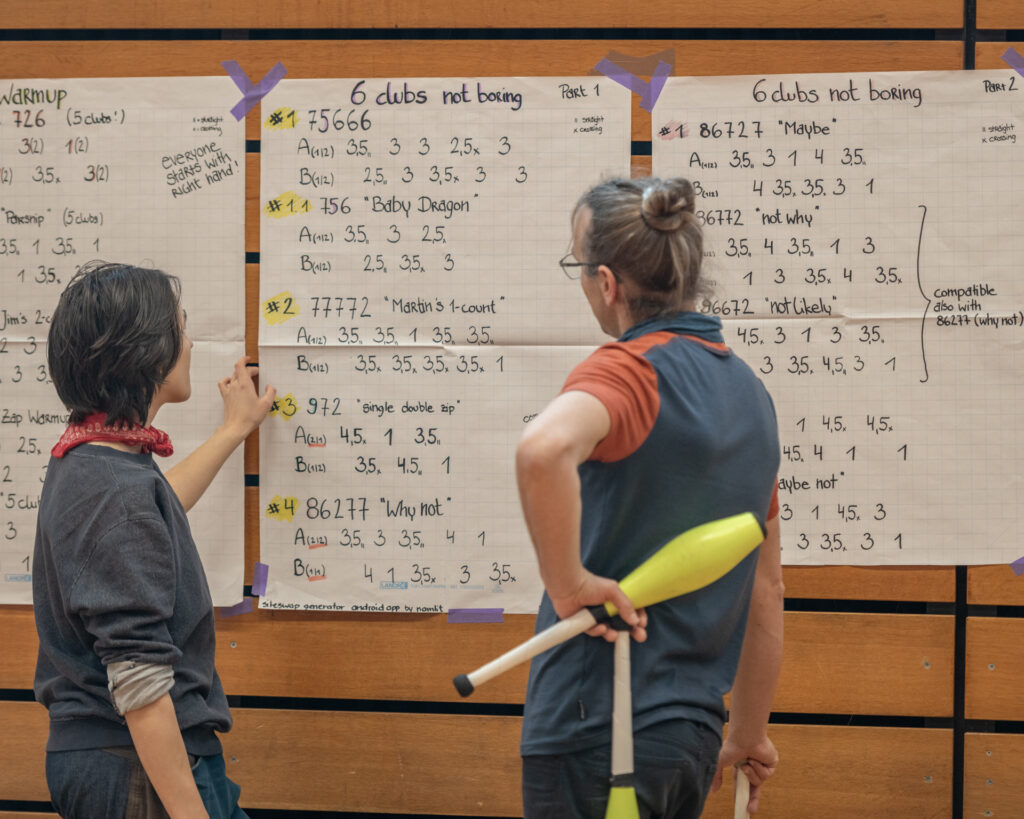 Warmup
726 (5 clubs!)
ıı straight
x crossing
3(2) 1(2)
3,5ₓ 3(2)
everyone
starts with
right hand!
"Parsnip" (5 clubs)
3,5ıı 1 3,5ıı 1
1 3,5ₓ
Jim's 2-c
2 3
3 3,5
Zap Warmup
2,5ₓ
2
"5 club
3
6 clubs not boring Part 1
ıı straight
x crossing
#1 75666
A(1|2) 3,5ıı 3 3 2,5ₓ 3
B(1|2) 2,5ıı 3 3,5ₓ 3 3
#1.1 756 "Baby Dragon"
A(1|2) 3,5ıı 3 2,5ₓ
B(1|2) 2,5ıı 3,5ₓ 3
#2 77772 "Martin's 1-count"
A(1|2) 3,5ıı 3,5ıı 1 3,5ıı 3,5ıı
B(1|2) 3,5ₓ 3,5ₓ 3,5ₓ 3,5ₓ 1
#3 972 "single double zip"
A(2|1) 4,5ₓ 1 3,5ıı
B(1|2) 3,5ₓ 4,5ıı 1
#4 86277 "Why not"
A(2|2) 3,5ıı 3 3,5ıı 4 1
B(1|1) 4 1 3,5ₓ 3 3,5ₓ
LANDRÉ
siteswap generator android app by namlit
6 clubs not boring Part 2
ıı straight
x crossing
#1 86727 "Maybe"
A(1|2) 3,5ıı 3 1 4 3,5ıı
B(1|2) 4 3,5ₓ 3,5ₓ 3 1
86772 "not why"
3,5ıı 4 3,5ıı 1 3
1 3 3,5ₓ 4 3,5ₓ
compatible
also with
86277 (why not)
86672 "not likely"
4,5ₓ 3 1 3 3,5ıı
3 3,5ₓ 4,5ıı 3 1
1 4,5ₓ 4,5ₓ
4,5ıı 4 1 1
aybe not"
3 1 4,5ₓ 3
3 3,5ₓ 3 1